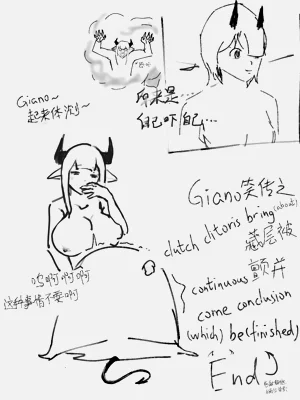 原来是…
自己吓自己…
Giano~
Giano笑传之
clutch clitoris bring(about)
continuous
come conclusion
(which) be(finished)
End
呜啊啊啊
这种事情不要啊